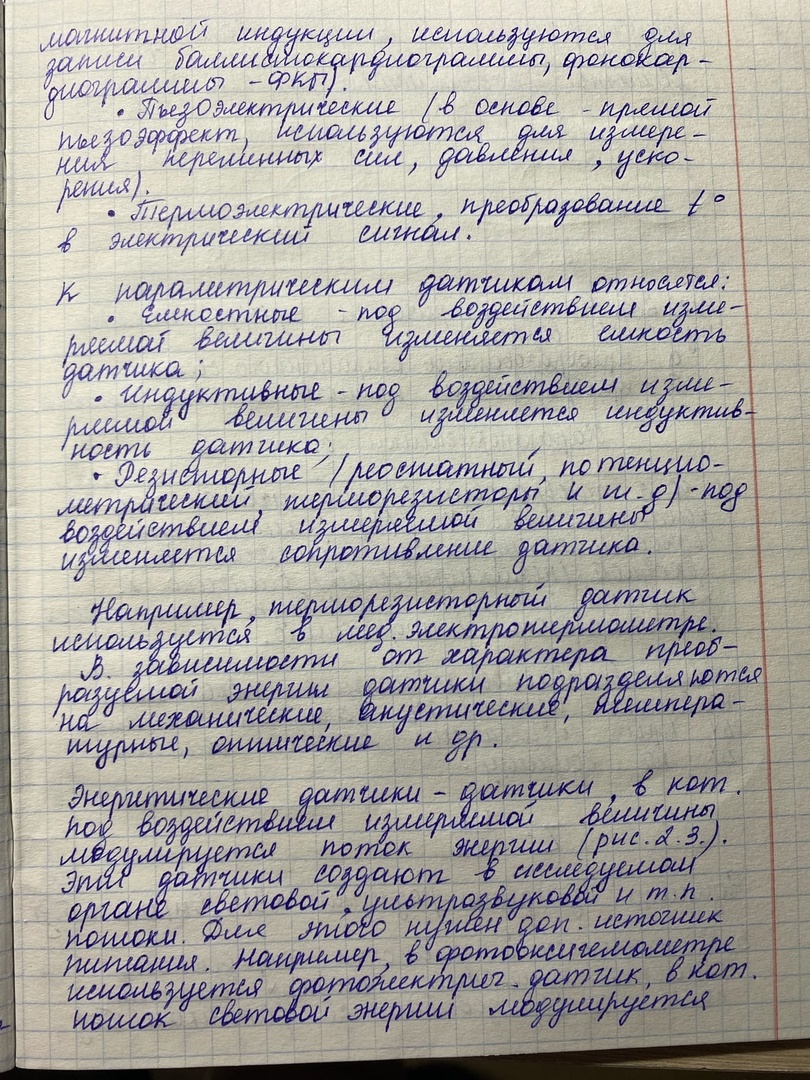 магнитной индукции, используются для
записи баллистокардиограммы, фонокар-
диограммы - ФКГ).
• Пьезоэлектрические (в основе - прямой
пьезоэффект, используются для измере-
ния переменных сил, давления, уско-
рения).
• Термоэлектрические, преобразование t°
в электрический сигнал.
К параметрическим датчикам относятся:
• Емкостные - под воздействием изме-
ряемой величины изменяется емкость
датчика;
• Индуктивные - под воздействием изме-
ряемой величины изменяется индуктив-
ность датчика;
• Резисторные (реостатный, потенцио-
метрический, терморезисторы и т.д) - под
воздействием измеряемой величины
изменяется сопротивление датчика.
Например, терморезисторный датчик
используется в мед. электротермометре.
В зависимости от характера преоб-
разуемой энергии датчики подразделяются
на механические, акустические, темпера-
турные, оптические и др.
Энергетические датчики - датчики, в кот.
под воздействием измеряемой величины
модулируется поток энергии (рис. 2.3.).
Эти датчики создают в исследуемом
органе световой, ультразвуковой и т.п.
потоки. Для этого нужен доп. источник
питания. Например, в фотооксигемометре
используется фотоэлектрич. датчик, в кот.
поток световой энергии модулируется